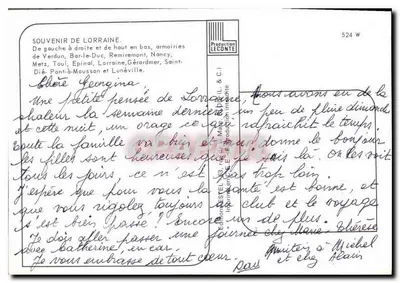 SOUVENIR DE LORRAINE.
De gauche à droite et de haut en bas, armoiries
de Verdun, Bar-le-Duc, Remiremont, Nancy,
Metz, Toul, Epinal, Lorraine, Gérardmer, Saint-
Dié, Pont-à-Mousson et Lunéville.
Production
LECONTE
524 W
Chère Georgina.
Une petite pensée de Lorraine, nous avons eu de la
chaleur la semaine dernière, un peu de pluie dimanche
et cette nuit, un orage, ça rafraichit le temps.
toute la famille va bien et vous donne le bonjour
les filles sont heureuses que je sois là. On les voit
tous les jours, ce n'est pas trop loin.
J'espère que pour vous la santé est bonne, et
que vous rigolez toujours au club et le voyage
s'est bien passé ? Encore un de plus.
Je dois aller passer une journée chez Marie-Thérèse
avec Catherine, en car.
Je vous embrasse de tout cœur.
à Michel
et chez Alain